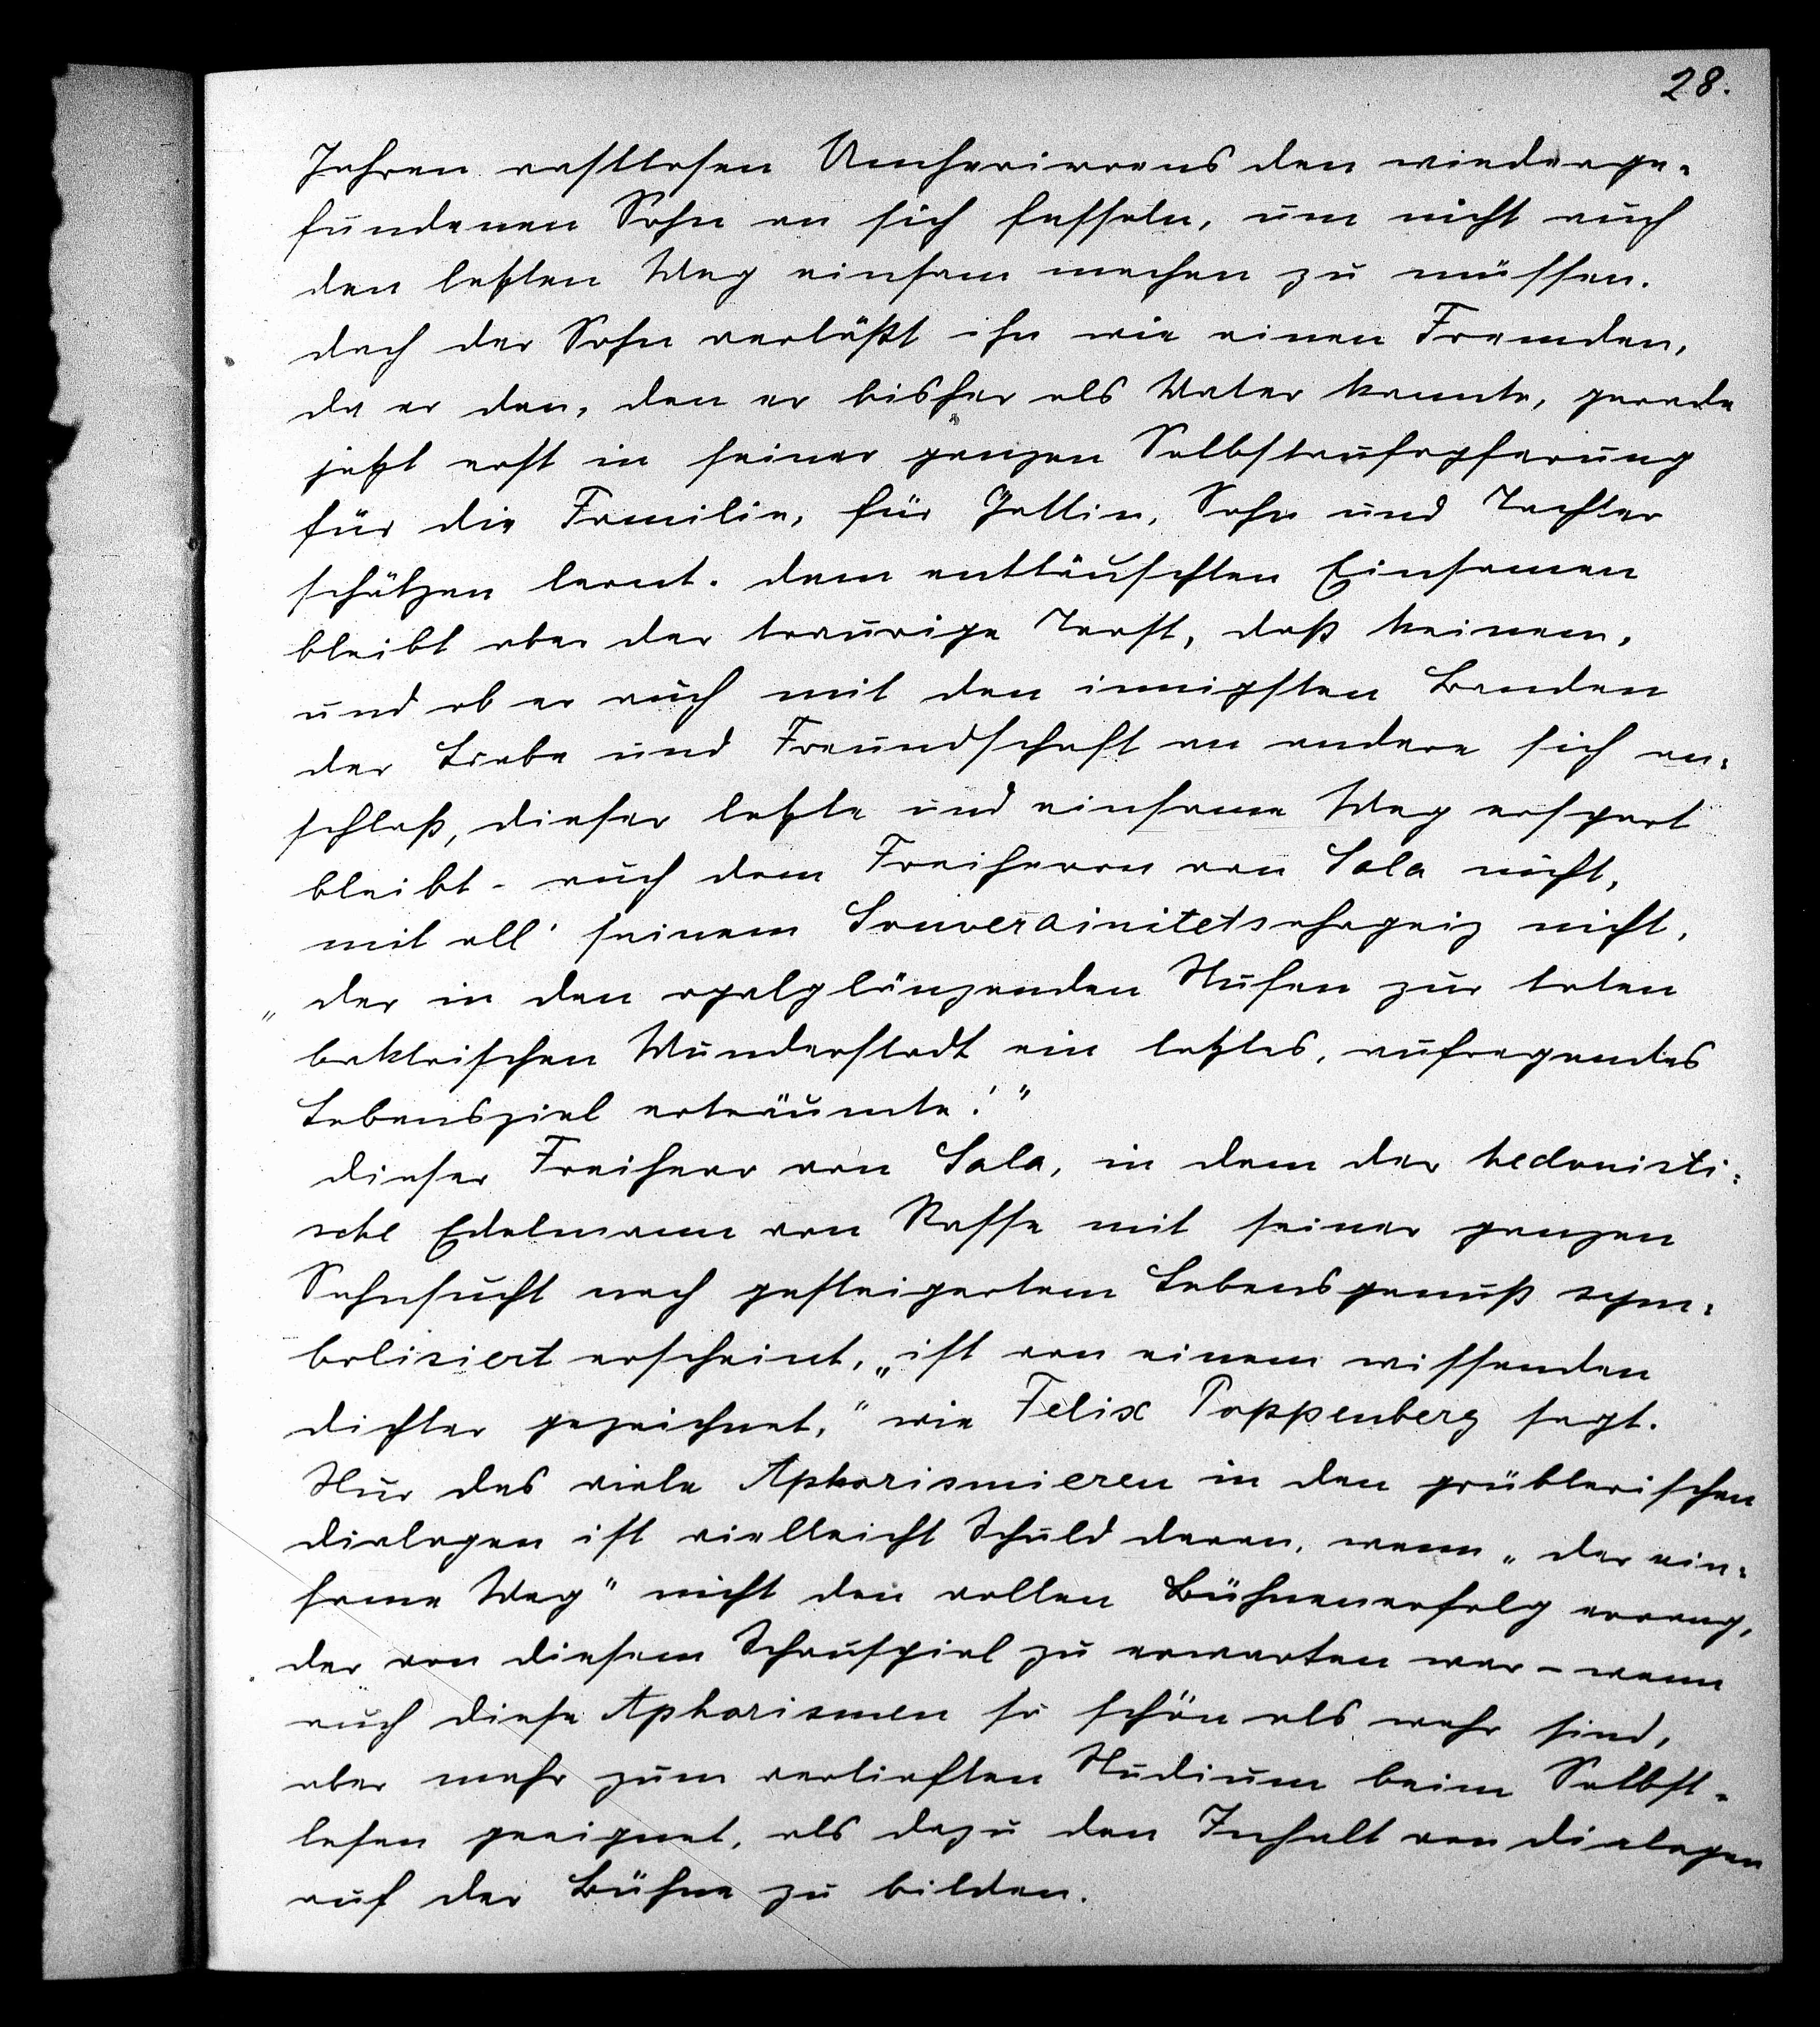 28.
Jahren rastlosen Umherirrens den wiederge-
fundenen Sohn an sich fesseln, um nicht auch
den letzten Weg einsam machen zu müssen.
doch der Sohn verläßt ihn wie einen Fremden,
da er den, den er bisher als Vater kannte, gerade
jetzt erst in seiner ganzen Selbstaufopferung
für die Familie, für Gattin, Sohn und Tochter
schätzen lernt. dem enttäuschten Einsamen
bleibt aber der traurige Trost, daß keinem,
und ob er auch mit den innigsten Banden
der Liebe und Freundschaft an andere sich an-
schloß, dieser letzte und einsame Weg erspart
bleibt - auch dem Freiherrn von Sala nicht,
mit all' seinem Souverainitetsehrgeiz nicht,
„der in den opalglänzenden Stufen zur toten
baktrischen Wunderstadt ein letztes, aufregendes
Lebensziel erträumte!"
dieser Freiherr von Sala, in dem der hedonisti-
sche Edelmann von Rasse mit seiner ganzen
Sehnsucht nach gesteigertem Lebensgenuß sym-
bolisiert erscheint, „ist von einem wissenden
dichter gezeichnet," wie Felix Poppenberg sagt.
Nur das viele Aphorismieren in den grüblerischen
dialogen ist vielleicht Schuld daran, wenn „der ein-
same Weg" nicht den vollen Bühnenerfolg errang,
der von diesem Schauspiel zu erwarten war - wenn
auch diese Aphorismen so schön als wahr sind,
aber mehr zum vertieften Studium beim Selbst-
lesen geeignet, als dazu den Inhalt von dialogen
auf der Bühne zu bilden.